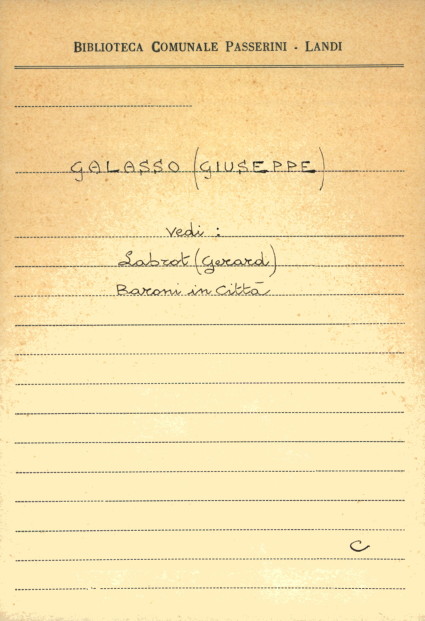 BIBLIOTECA COMUNALE PASSERINI - LANDI
GALASSO (GIUSEPPE)
Vedi :
Labrot (Gerard)
Baroni in Città
C